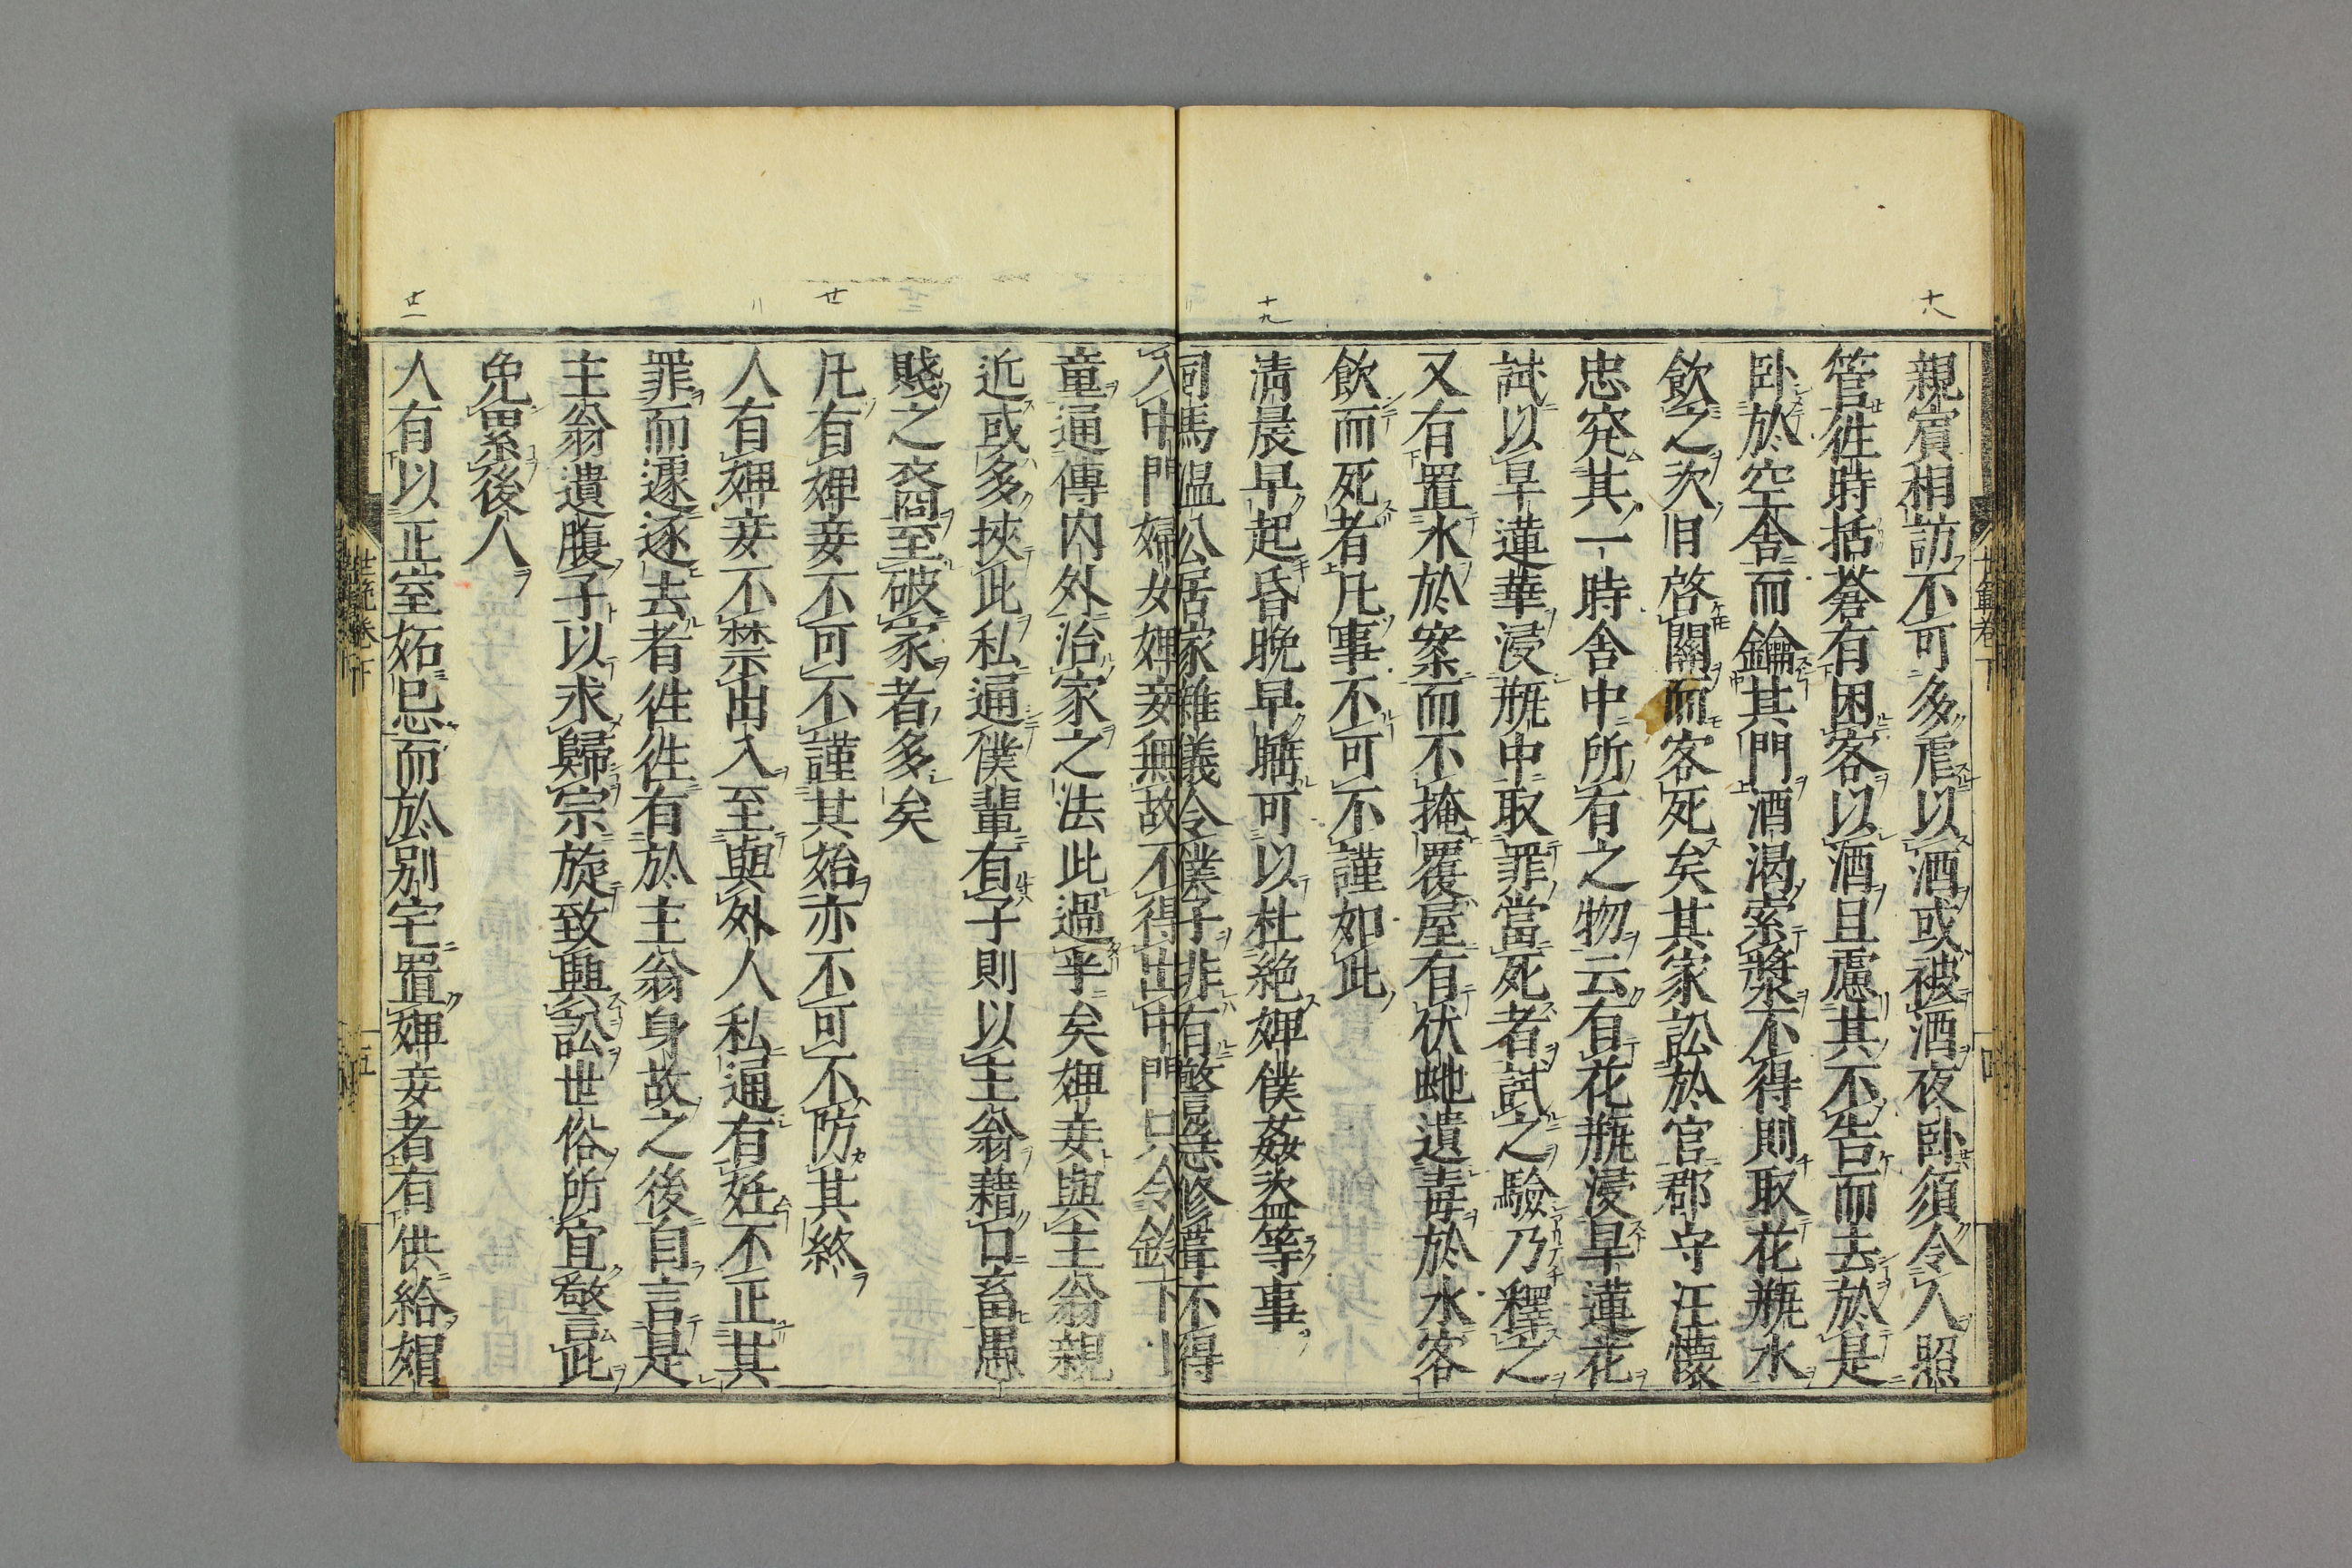 十八
親賓相訪不可多虐以酒或被酒夜卧須令人照
管徃時括蒼有困客以酒且慮其不告而去於是
卧於空舎而鑰其門酒渇索漿不得則取花瓶水
飲之次日啓關而客死矣其家訟於官郡守汪懐
忠究其一時舎中所有之物云有花瓶浸旱蓮花
試以旱蓮華浸瓶中取罪當死者試之驗乃釋之
又有置水於案而不掩覆屋有伏虵遺毒於水客
飲而死者凡事不可不謹如此
十九
清晨早起昏晩早睡可以杜絶婢僕姦盗等事
司馬温公居家雜儀令僕子非有警急修葺不得
入中門婦女婢妾無故不得出中門只令鈴下小
童通傳内外治家之法此過半矣婢妾與主翁親
近或多挾此私通僕輩有子則以主翁藉口畜愚
賤之裔至破家者多矣
廿
凡有婢妾不可不謹其始亦不可不防其終
人有婢妾不禁出入至與外人私通有姙不正其
罪而遽逐去者徃徃有於主翁身故之後自言是
主翁遺腹子以求歸宗旋致興訟世俗所宜警此
免累後人
廿一
人有以正室妬忌而於別宅置婢妾者有供給娼
世範卷下
四
世範卷下
五